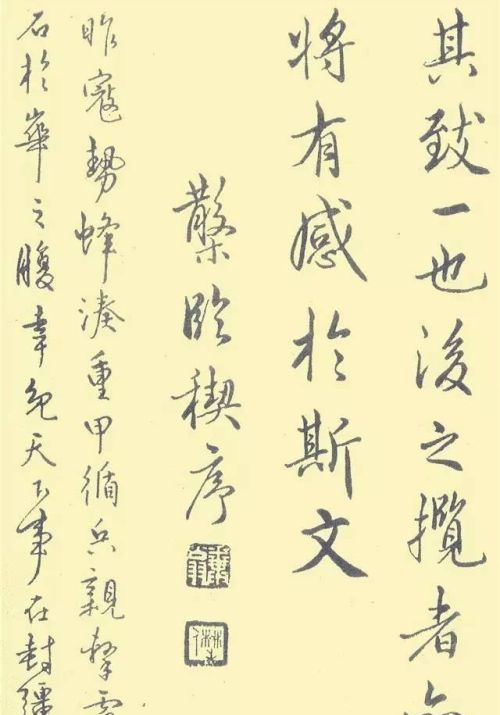 其致一也後之攬者
將有感於斯文
臨稧序
昨寇勢蜂湊重甲循兵親擊
石於華之腹幸免天下事在封疆